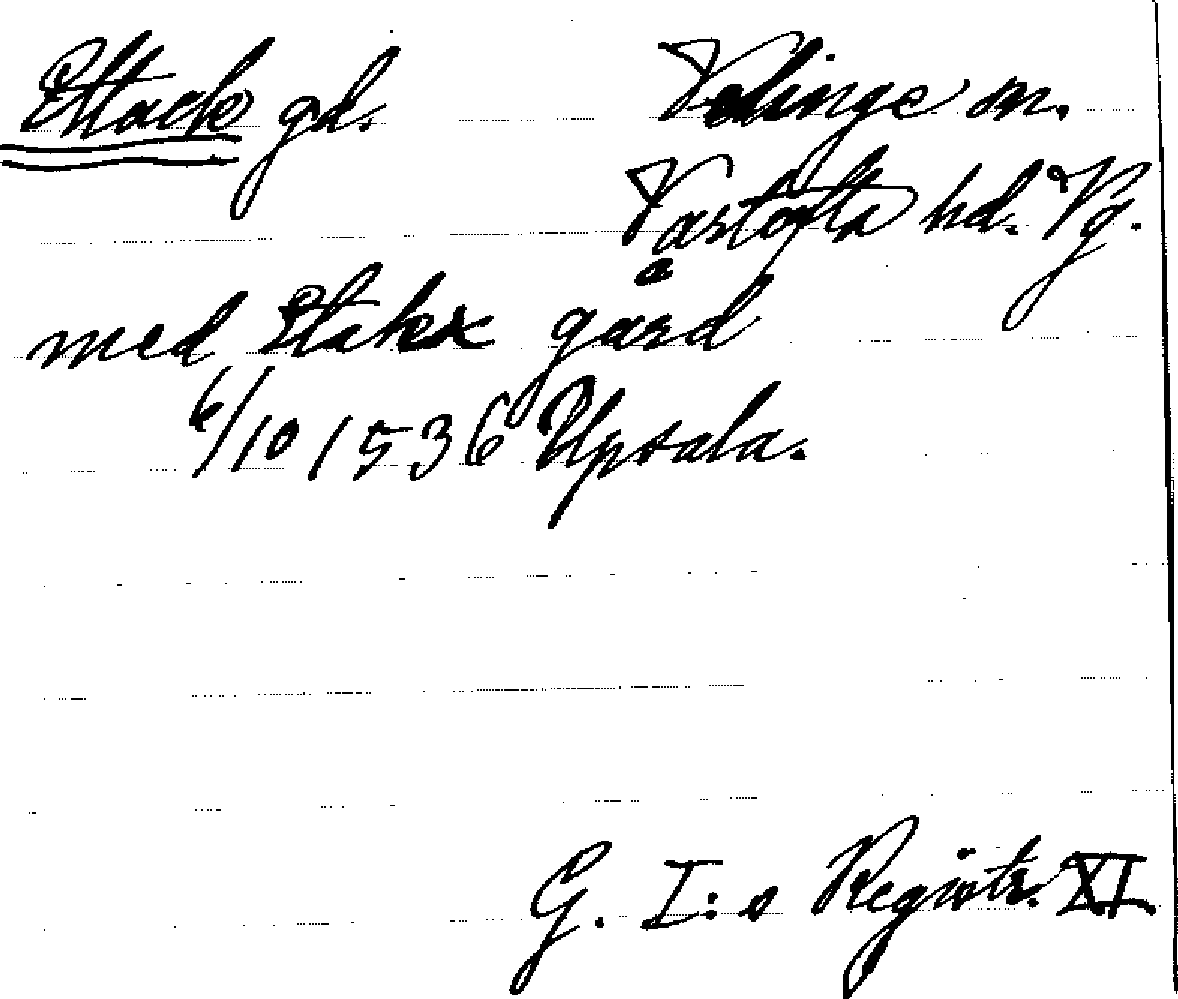 Ettack gd. Velinge sn.
Vartofta hd. Vg.
med Etakx gaard
6/10 1536 Upsala.
G. I:s Registr. XI.